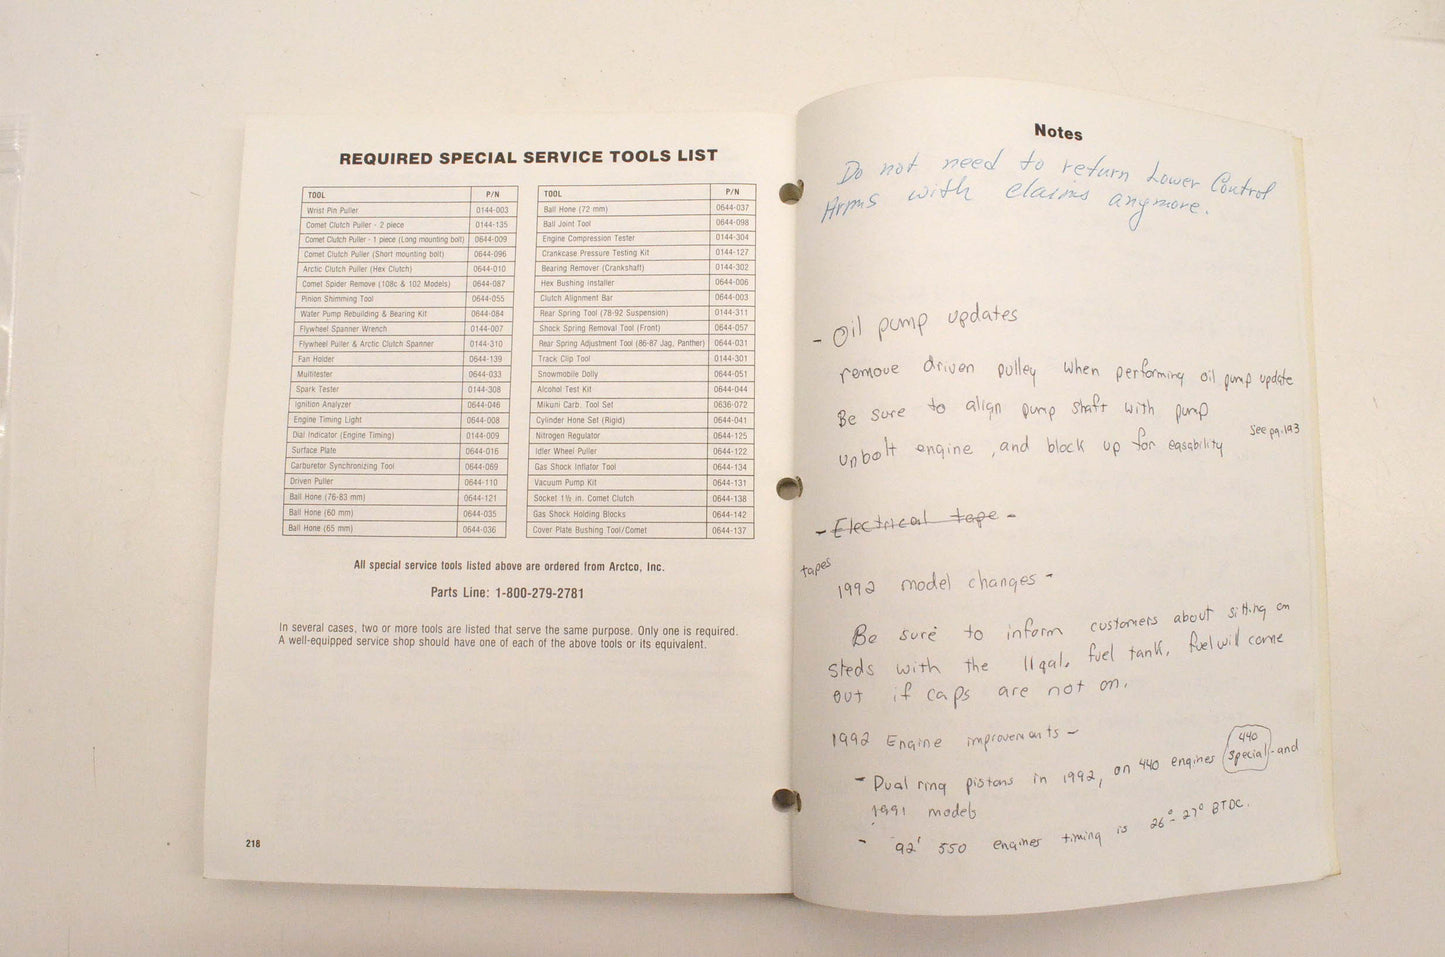 REQUIRED SPECIAL SERVICE TOOLS LIST
TOOL P/N
Wrist Pin Puller 0144-003
Comet Clutch Puller - 2 piece 0144-135
Comet Clutch Puller - 1 piece (Long mounting bolt) 0644-009
Comet Clutch Puller (Short mounting bolt) 0644-096
Arctic Clutch Puller (Hex Clutch) 0644-010
Comet Spider Remove (108c & 102 Models) 0644-087
Pinion Shimming Tool 0644-055
Water Pump Rebuilding & Bearing Kit 0644-084
Flywheel Spanner Wrench 0144-007
Flywheel Puller & Arctic Clutch Spanner 0144-310
Fan Holder 0644-139
Multitester 0644-033
Spark Tester 0144-308
Ignition Analyzer 0644-046
Engine Timing Light 0644-008
Dial Indicator (Engine Timing) 0144-009
Surface Plate 0644-016
Carburetor Synchronizing Tool 0644-069
Driven Puller 0644-110
Ball Hone (76-83 mm) 0644-121
Ball Hone (60 mm) 0644-035
Ball Hone (65 mm) 0644-036
TOOL P/N
Ball Hone (72 mm) 0644-037
Ball Joint Tool 0644-098
Engine Compression Tester 0144-304
Crankcase Pressure Testing Kit 0144-127
Bearing Remover (Crankshaft) 0144-302
Hex Bushing Installer 0644-006
Clutch Alignment Bar 0644-003
Rear Spring Tool (78-92 Suspension) 0144-311
Shock Spring Removal Tool (Front) 0644-057
Rear Spring Adjustment Tool (86-87 Jag, Panther) 0644-031
Track Clip Tool 0144-301
Snowmobile Dolly 0644-051
Alcohol Test Kit 0644-044
Mikuni Carb. Tool Set 0636-072
Cylinder Hone Set (Rigid) 0644-041
Nitrogen Regulator 0644-125
Idler Wheel Puller 0644-122
Gas Shock Inflator Tool 0644-134
Vacuum Pump Kit 0644-131
Socket 1½ in. Comet Clutch 0644-138
Gas Shock Holding Blocks 0644-142
Cover Plate Bushing Tool/Comet 0644-137
All special service tools listed above are ordered from Arctco, Inc.
Parts Line: 1-800-279-2781
In several cases, two or more tools are listed that serve the same purpose. Only one is required.
A well-equipped service shop should have one of each of the above tools or its equivalent.
218
Notes
Do not need to return Lower Control
Arms with claims anymore.
- Oil pump updates
remove driven pulley when performing oil pump update
Be sure to align pump shaft with pump
unbolt engine, and block up for easability see pg. 193
- Electrical tape -
tapes
1992 model changes -
Be sure to inform customers about sitting on
steds with the 11gal. fuel tank. fuel will come
out if caps are not on.
1992 Engine improvements -
- Dual ring pistons in 1992, on 440 engines 440 special - and
1991 models
- 92' 550 engines timing is 26° - 27° BTDC.